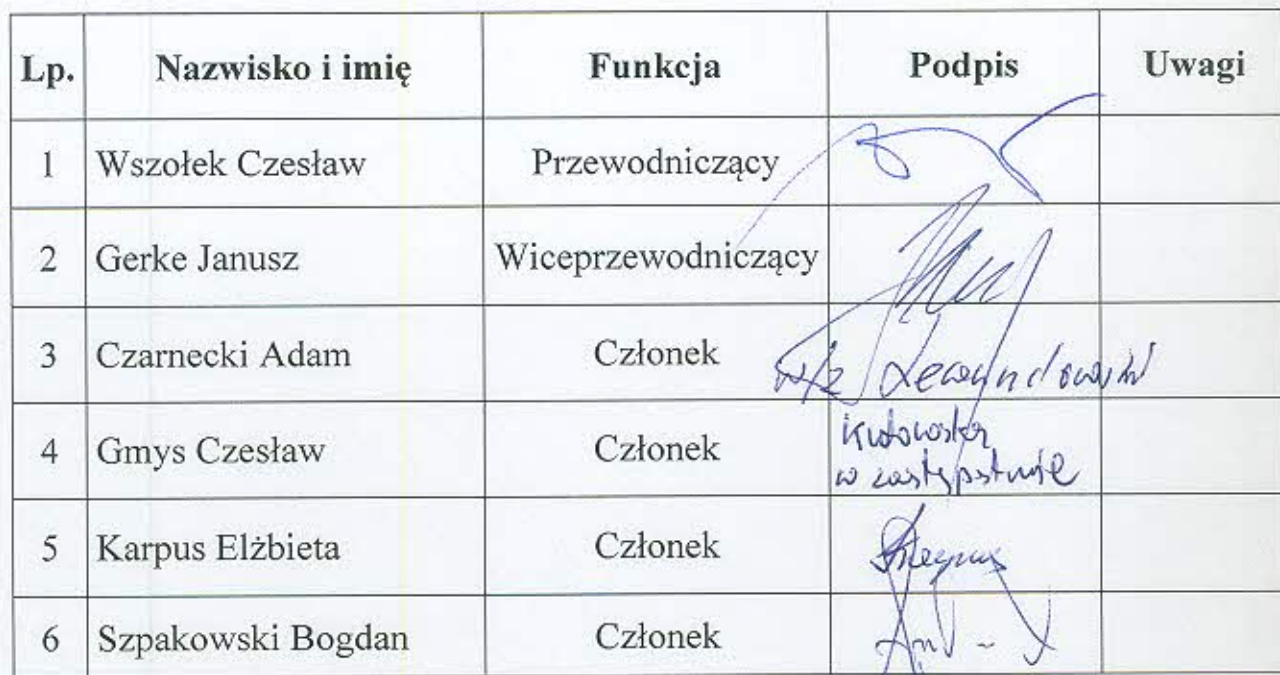 Lp. Nazwisko i imię Funkcja Podpis Uwagi
1 Wszołek Czesław Przewodniczący
2 Gerke Janusz Wiceprzewodniczący
3 Czarnecki Adam Członek w/z Lewandowski
4 Gmys Czesław Członek
w zastępstwie
5 Karpus Elżbieta Członek
6 Szpakowski Bogdan Członek